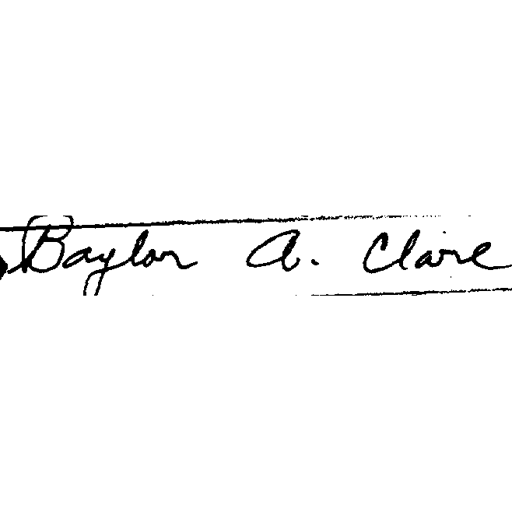 Baylor A. Claire